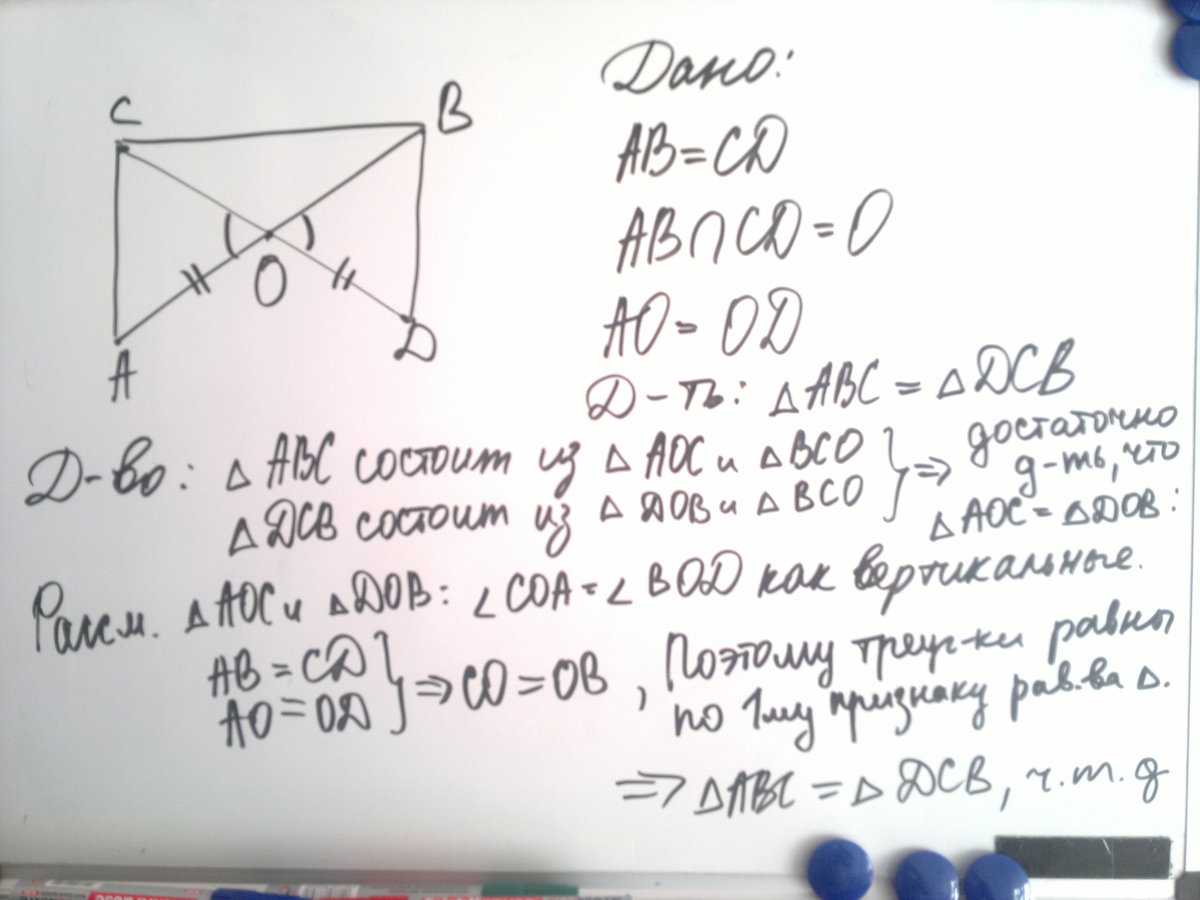 C
B
O
A
D
Дано:
AB=CD
AB∩CD=O
AO=OD
Д-ть: △ABC=△DCB
Д-во: △ABC состоит из △AOC и △BCO
△DCB состоит из △DOB и △BCO
} ⇒ достаточно
д-ть, что
△AOC=△DOB:
Рассм. △AOC и △DOB: ∠COA=∠BOD как вертикальные.
AB=CD
AO=OD
} ⇒ CO=OB, Поэтому треуг-ки равны
по 1му признаку рав.ва △.
⇒ △ABC=△DCB, ч.т.д